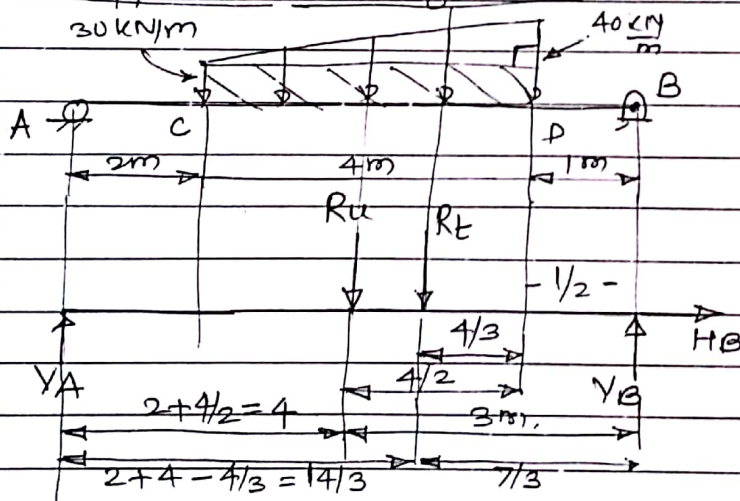 30 kN/m
40 kN/m
A
C
D
B
2m
4m
1m
Ru
Rt
- 1/2 -
4/3
HB
YA
4/2
YB
2+4/2=4
3m.
2+4-4/3 = 14/3
7/3